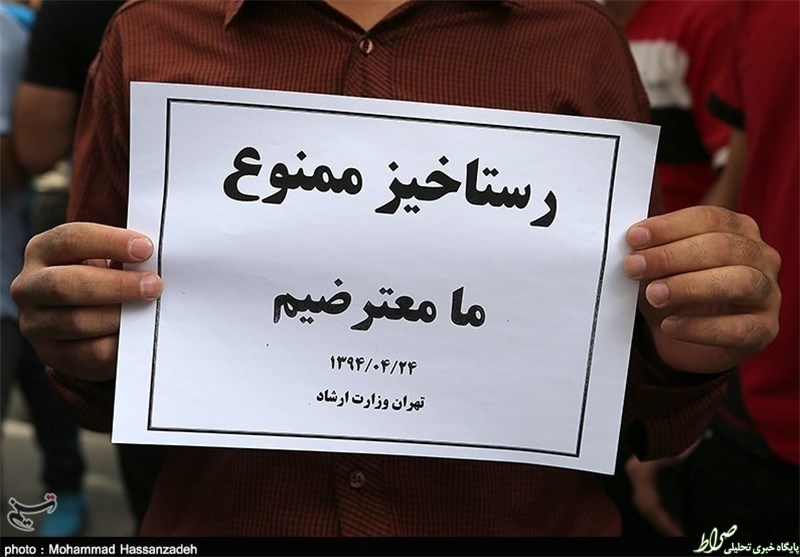 رستاخیز ممنوع
ما معترضیم
۱۳۹۴/۰۴/۲۴
تهران وزارت ارشاد
تسنیم
photo : Mohammad Hassanzadeh
صراط
پایگاه خبری تحلیلی